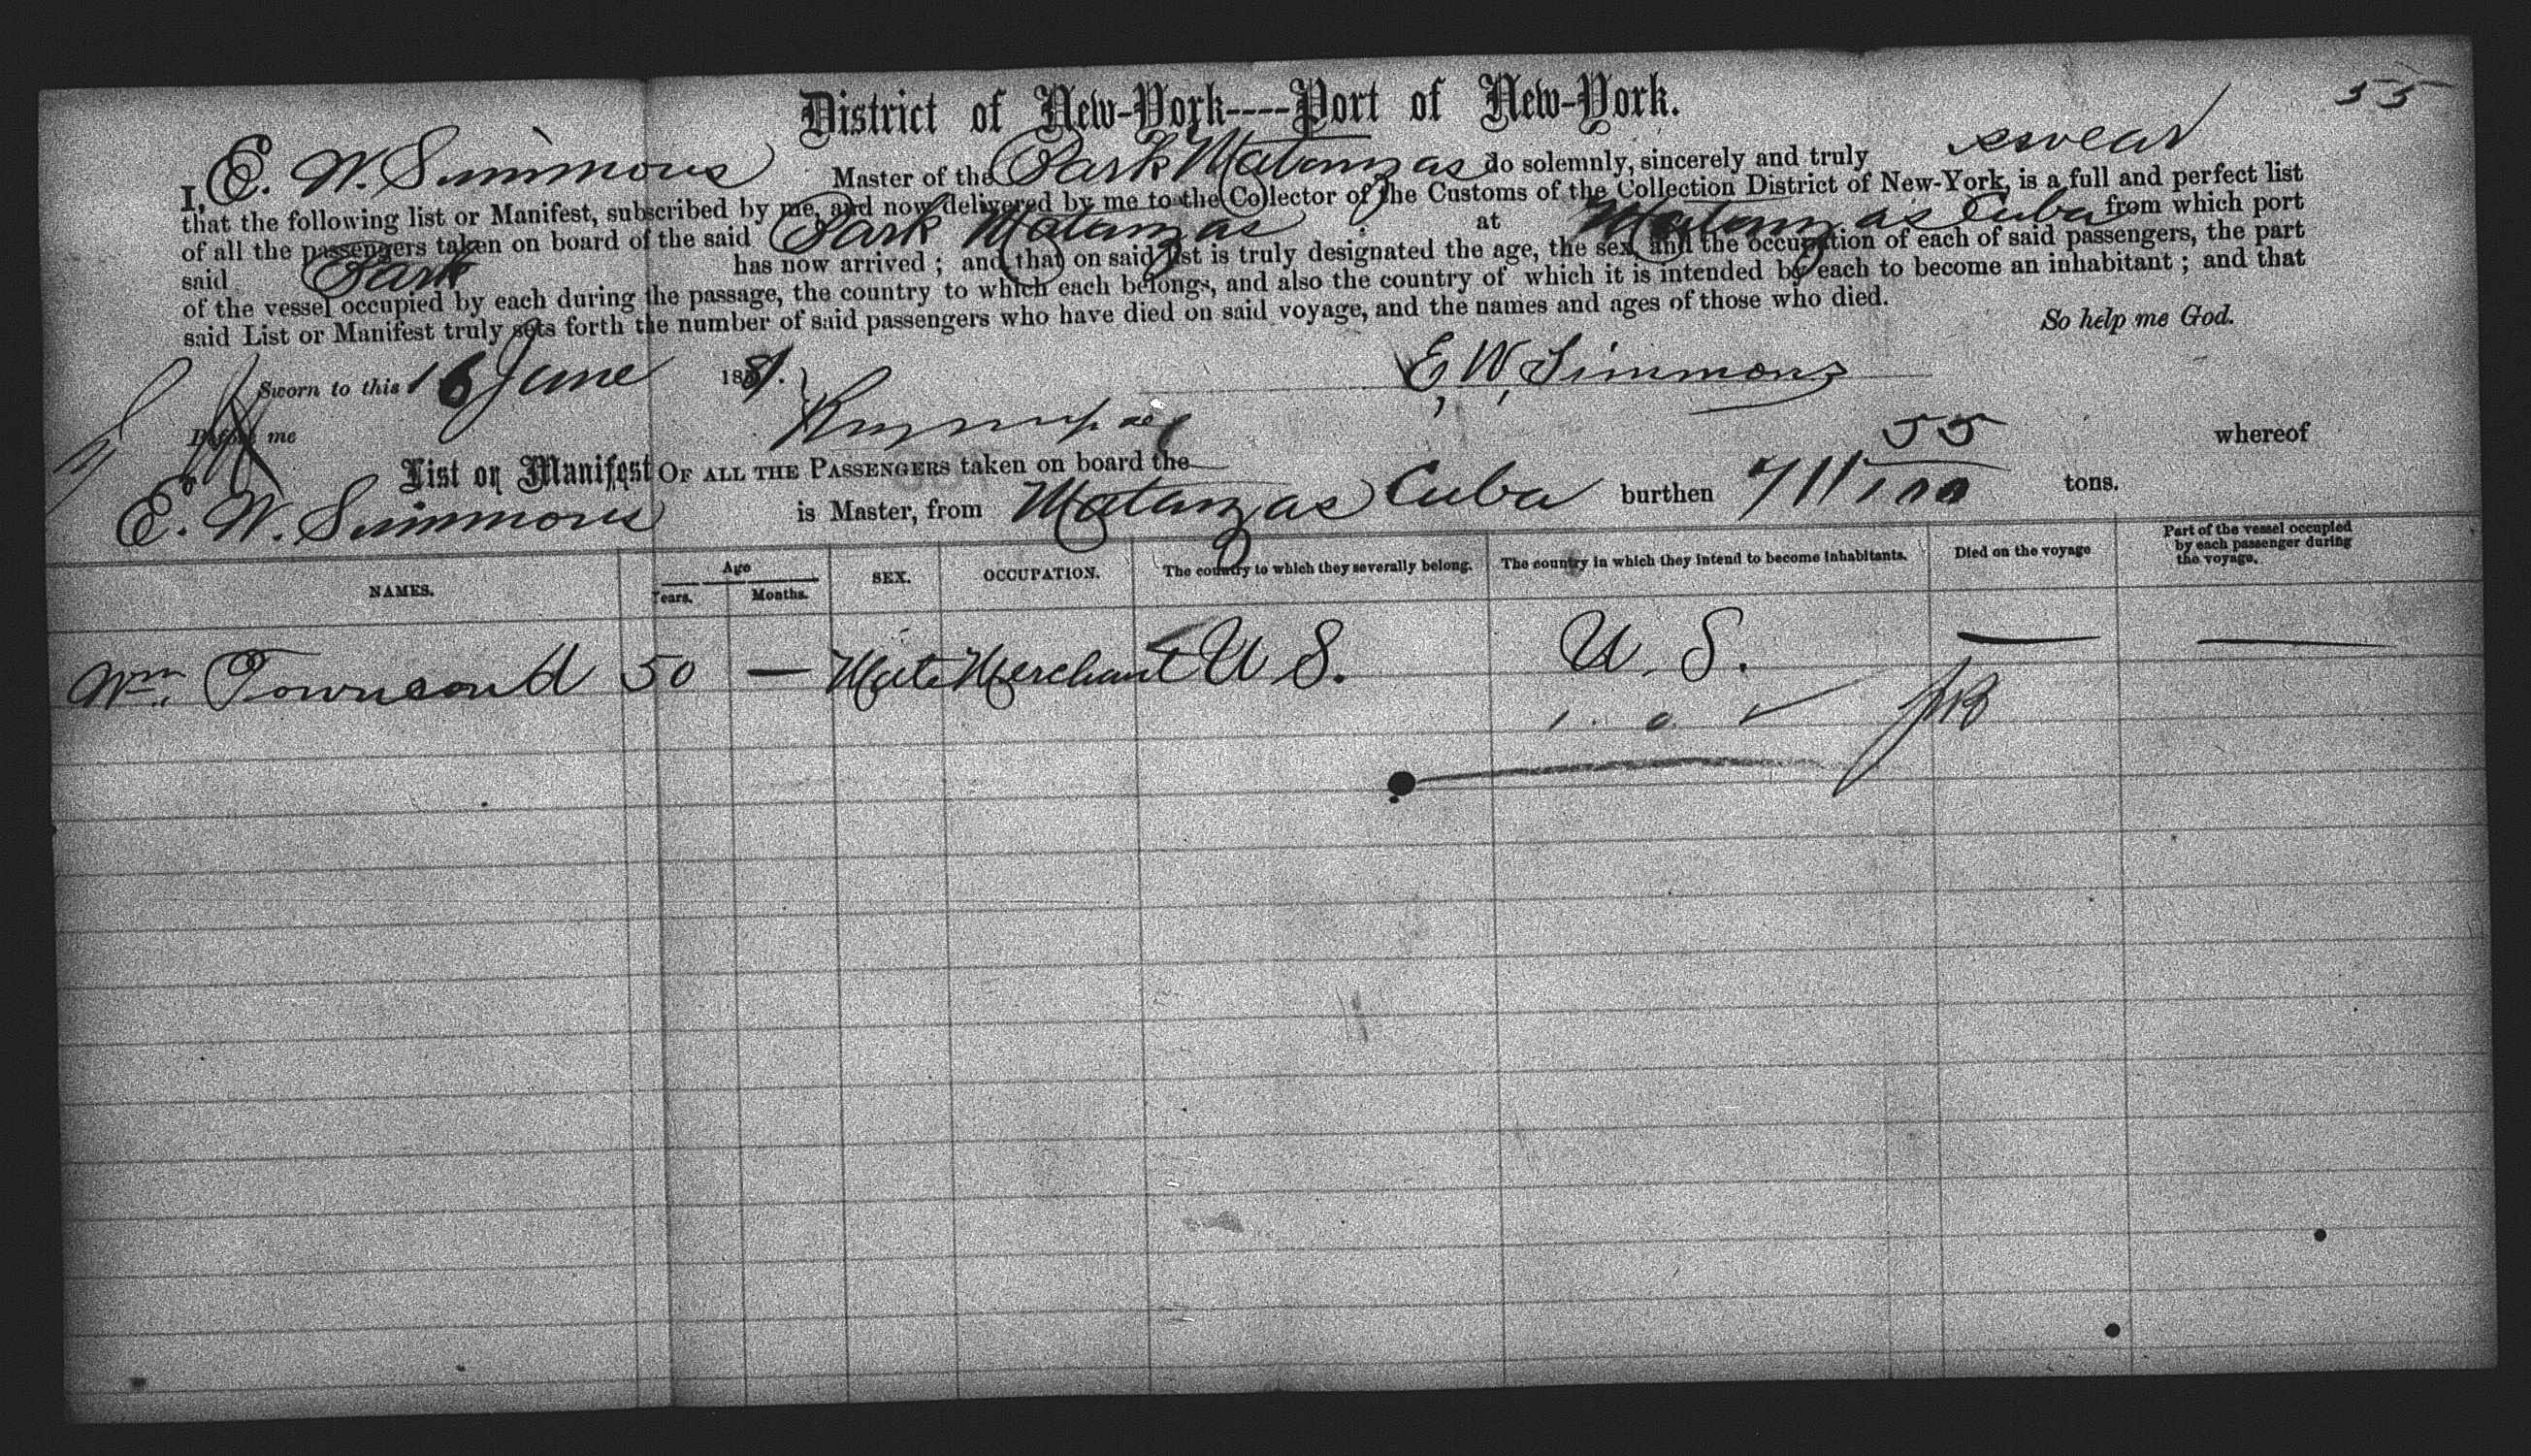 55
District of New-York----Port of New-York.
I, E. W. Simmons Master of the Bark Matanzas do solemnly, sincerely and truly swear
that the following list or Manifest, subscribed by me, and now delivered by me to the Collector of the Customs of the Collection District of New-York, is a full and perfect list
of all the passengers taken on board of the said Bark Matanzas at Matanzas Cuba from which port
said Bark has now arrived; and that on said list is truly designated the age, the sex, and the occupation of each of said passengers, the part
of the vessel occupied by each during the passage, the country to which each belongs, and also the country of which it is intended by each to become an inhabitant; and that
said List or Manifest truly sets forth the number of said passengers who have died on said voyage, and the names and ages of those who died.
So help me God.
Sworn to this 16 June 1881. E. W. Simmons
Before me
List or Manifest OF ALL THE PASSENGERS taken on board the whereof
E. W. Simmons is Master, from Matanzas Cuba burthen 711 55/100 tons.
NAMES. Age Years. Months. SEX. OCCUPATION. The country to which they severally belong. The country in which they intend to become inhabitants. Died on the voyage Part of the vessel occupied by each passenger during the voyage.
Wm. Townsend 50 — Male Merchant U S. U. S. — —